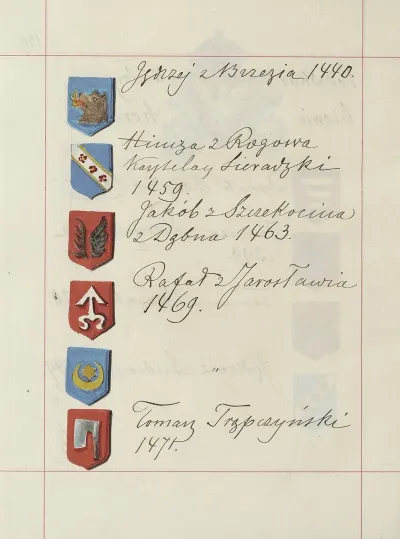 Jędrzej z Brzezia 1440.
Hincza z Rogowa
Kasztelan Sieradzki
1459.
Jakób z Szczekocina
z Dębna 1463.
Rafał z Jarosławia
1469.
"
Tomasz Trąpczyński
1471.